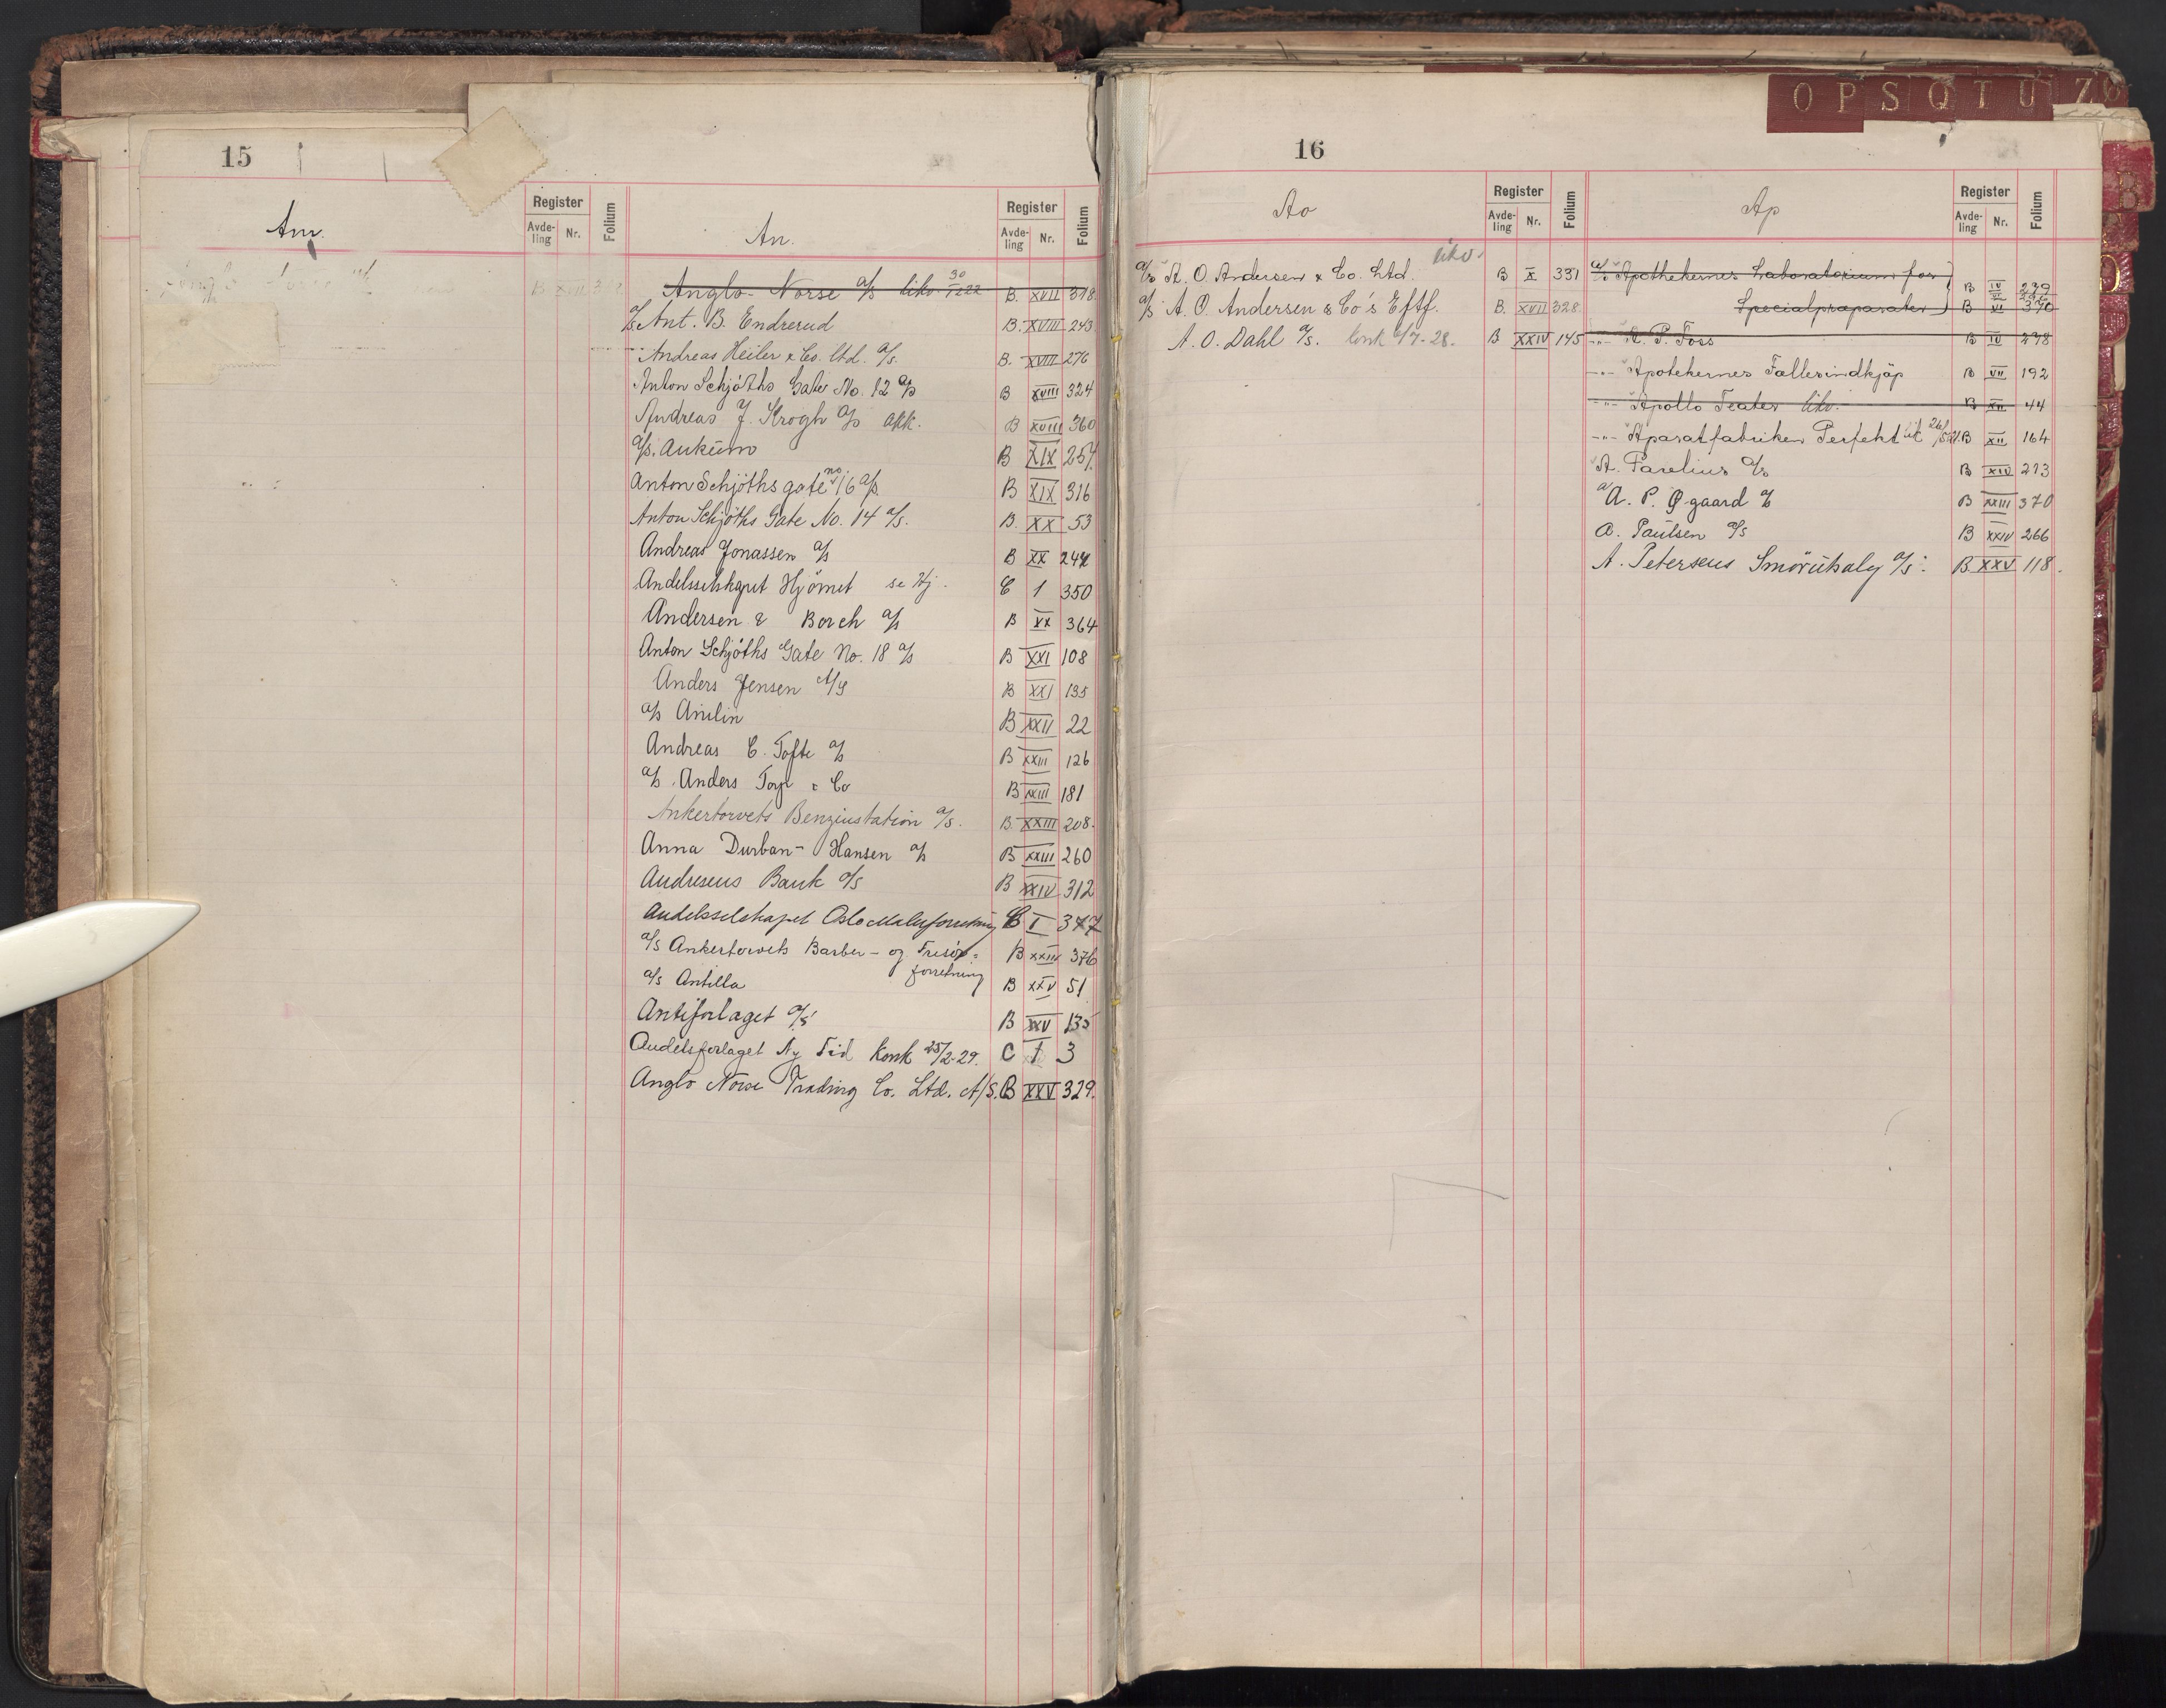 15
Am.
Register
Avde-ling Nr. Folium
An.
Register
Avde-ling Nr. Folium
Anglo-Norse a/s likv. 30/12 22 B. XVII 318
a/s Ant. B. Endrerud B. XVIII 243
Andreas Heiler & Co. Ltd. a/s. B. XVIII 276
Anton Schjöths Gate No. 12 a/s B XVIII 324
Andreas J. Krogh a/s akk. B XVIII 360
a/s. Ankum B XIX 257
Anton Schjöths gate no 16 a/s. B XIX 316
Anton Schjöths Gate No. 14 a/s. B. XX 53
Andreas Jonassen a/s B XX 244
Andelsselskapet Hjömet se Hj. C 1 350
Andersen & Borch a/s B XX 364
Anton Schjöths Gate No. 18 a/s B XXI 108
Anders Jensen A/S B XXI 135
a/s Anilin B XXII 22
Andreas C. Tofte a/s B XXIII 126
a/s. Anders & Co B XXIII 181
Ankertorvets Benzinstation a/s. B. XXIII 208.
Anna Durban-Hansen a/s B XXIII 260
Andresens Bank a/s B XXIV 312
Andelsselskapet Oslo I
a/s Ankertorvets Barber- og Frisör- B 376
forretning
a/s Antilla B XXV 51
Antiforlaget a/s B XXV 135
Andelsforlaget Ny Tid Konk 25/2-29. C 1 3
Anglo Norse Trading Co. Ltd. A/S. B XXV 329.
16
O P S Q T U
Ao
Register
Avde-ling Nr. Folium
Ap
Register
Avde-ling Nr. Folium
likv.
a/s A. O. Andersen & Co. Ltd. B X 331
a/s A. O. Andersen & Co's Eftf. B. XVII 328
A. O. Dahl a/s. konk 4/7-28. B XXIV 145
a/s Apothekernes Laboratorium for B IV 239
Specialpræparater B VI 370
-"- A. P. Foss B IV 298
-"- Apotekernes Fællesindkjøp B VII 192
-"- Apollo Teater likv. B XII 44
-"- Aparatfabriken Perfekt B XII 164
A. Parelius a/s B XIV 213
A. P. Øgaard a/s B XXIII 370
A. Paulsen a/s B XXIV 266
A. Petersens Smörutsalg a/s. B XXV 118.